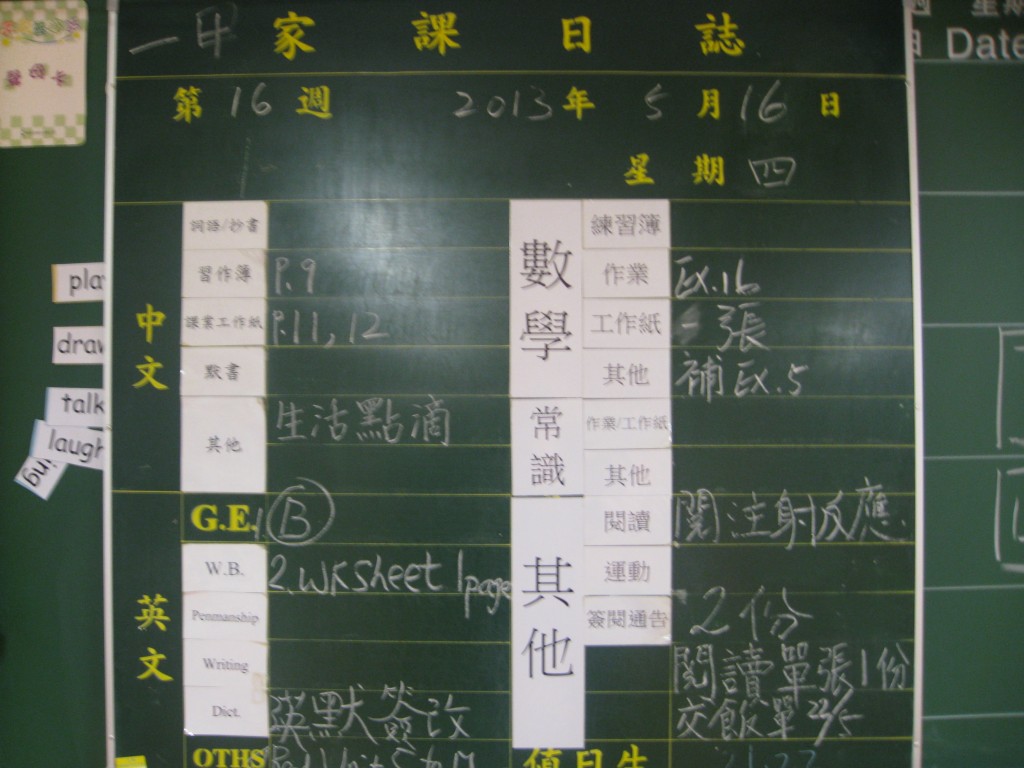 一甲 家課日誌
第16週 2013年5月16日
星期四
Date
中文
詞語/抄書
習作簿 P.9
課業工作紙 P.11, 12
默書
其他 生活點滴
英文
G.E. 1. B
W.B. 2. WKsheet 1page
Penmanship
Writing
Dict. 英默簽改
OTHS
數學
練習簿
作業 EX.16
工作紙 一張
其他 補EX.5
常識
作業/工作紙
其他
其他
閱讀 閱注射反應
運動
簽閱通告 2份
閱讀單張1份
交飯單22/5
值日生 21.22
play
draw
talk
laugh